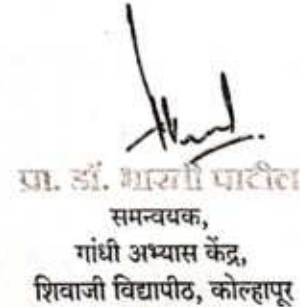 प्रा. डॉ. भारती पाटील
समन्वयक,
गांधी अभ्यास केंद्र,
शिवाजी विद्यापीठ, कोल्हापूर